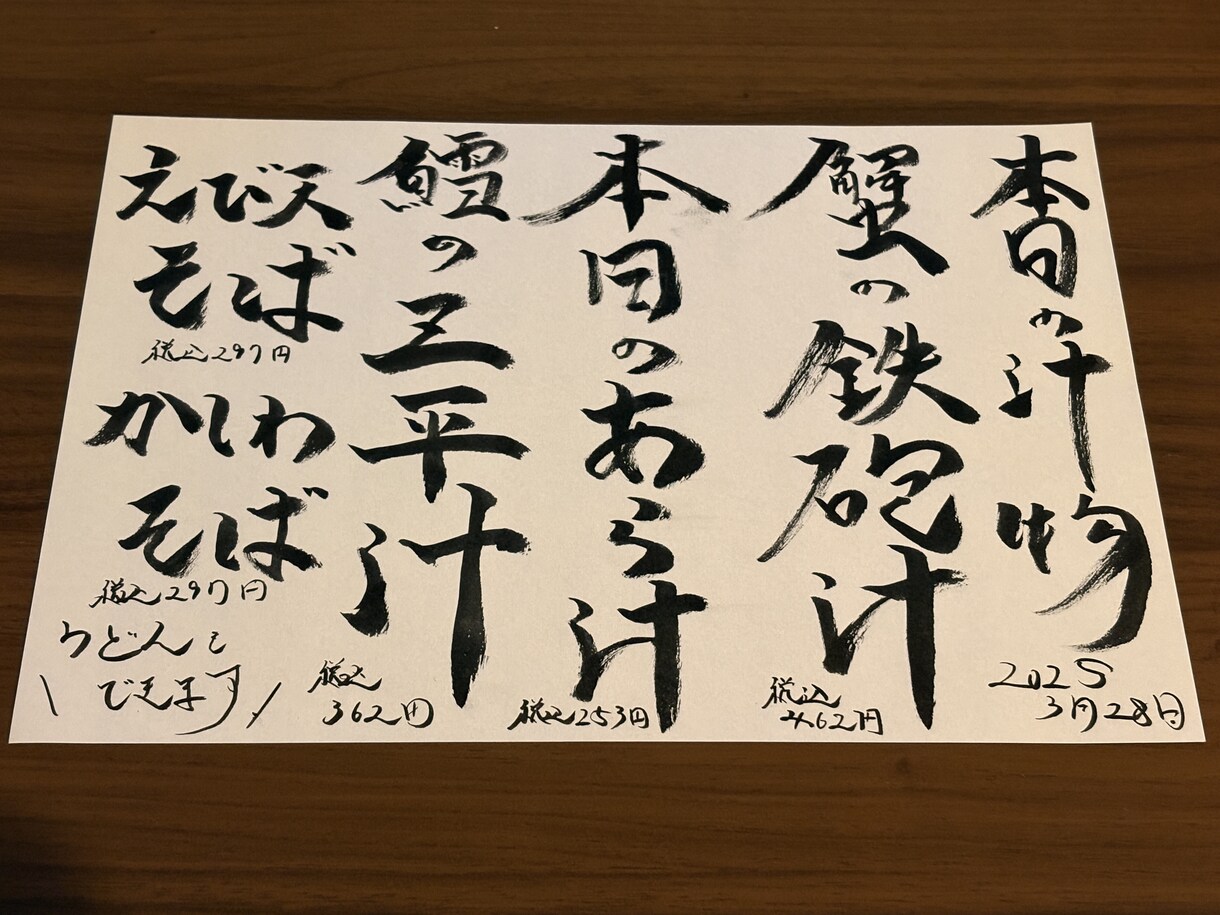 本日の汁物
2025
3月28日
蟹の鉄砲汁
税込
462円
本日のあら汁
税込253円
鱈の三平汁
税込
362円
えび天
そば
税込297円
かしわ
そば
税込297円
うどんも
できます